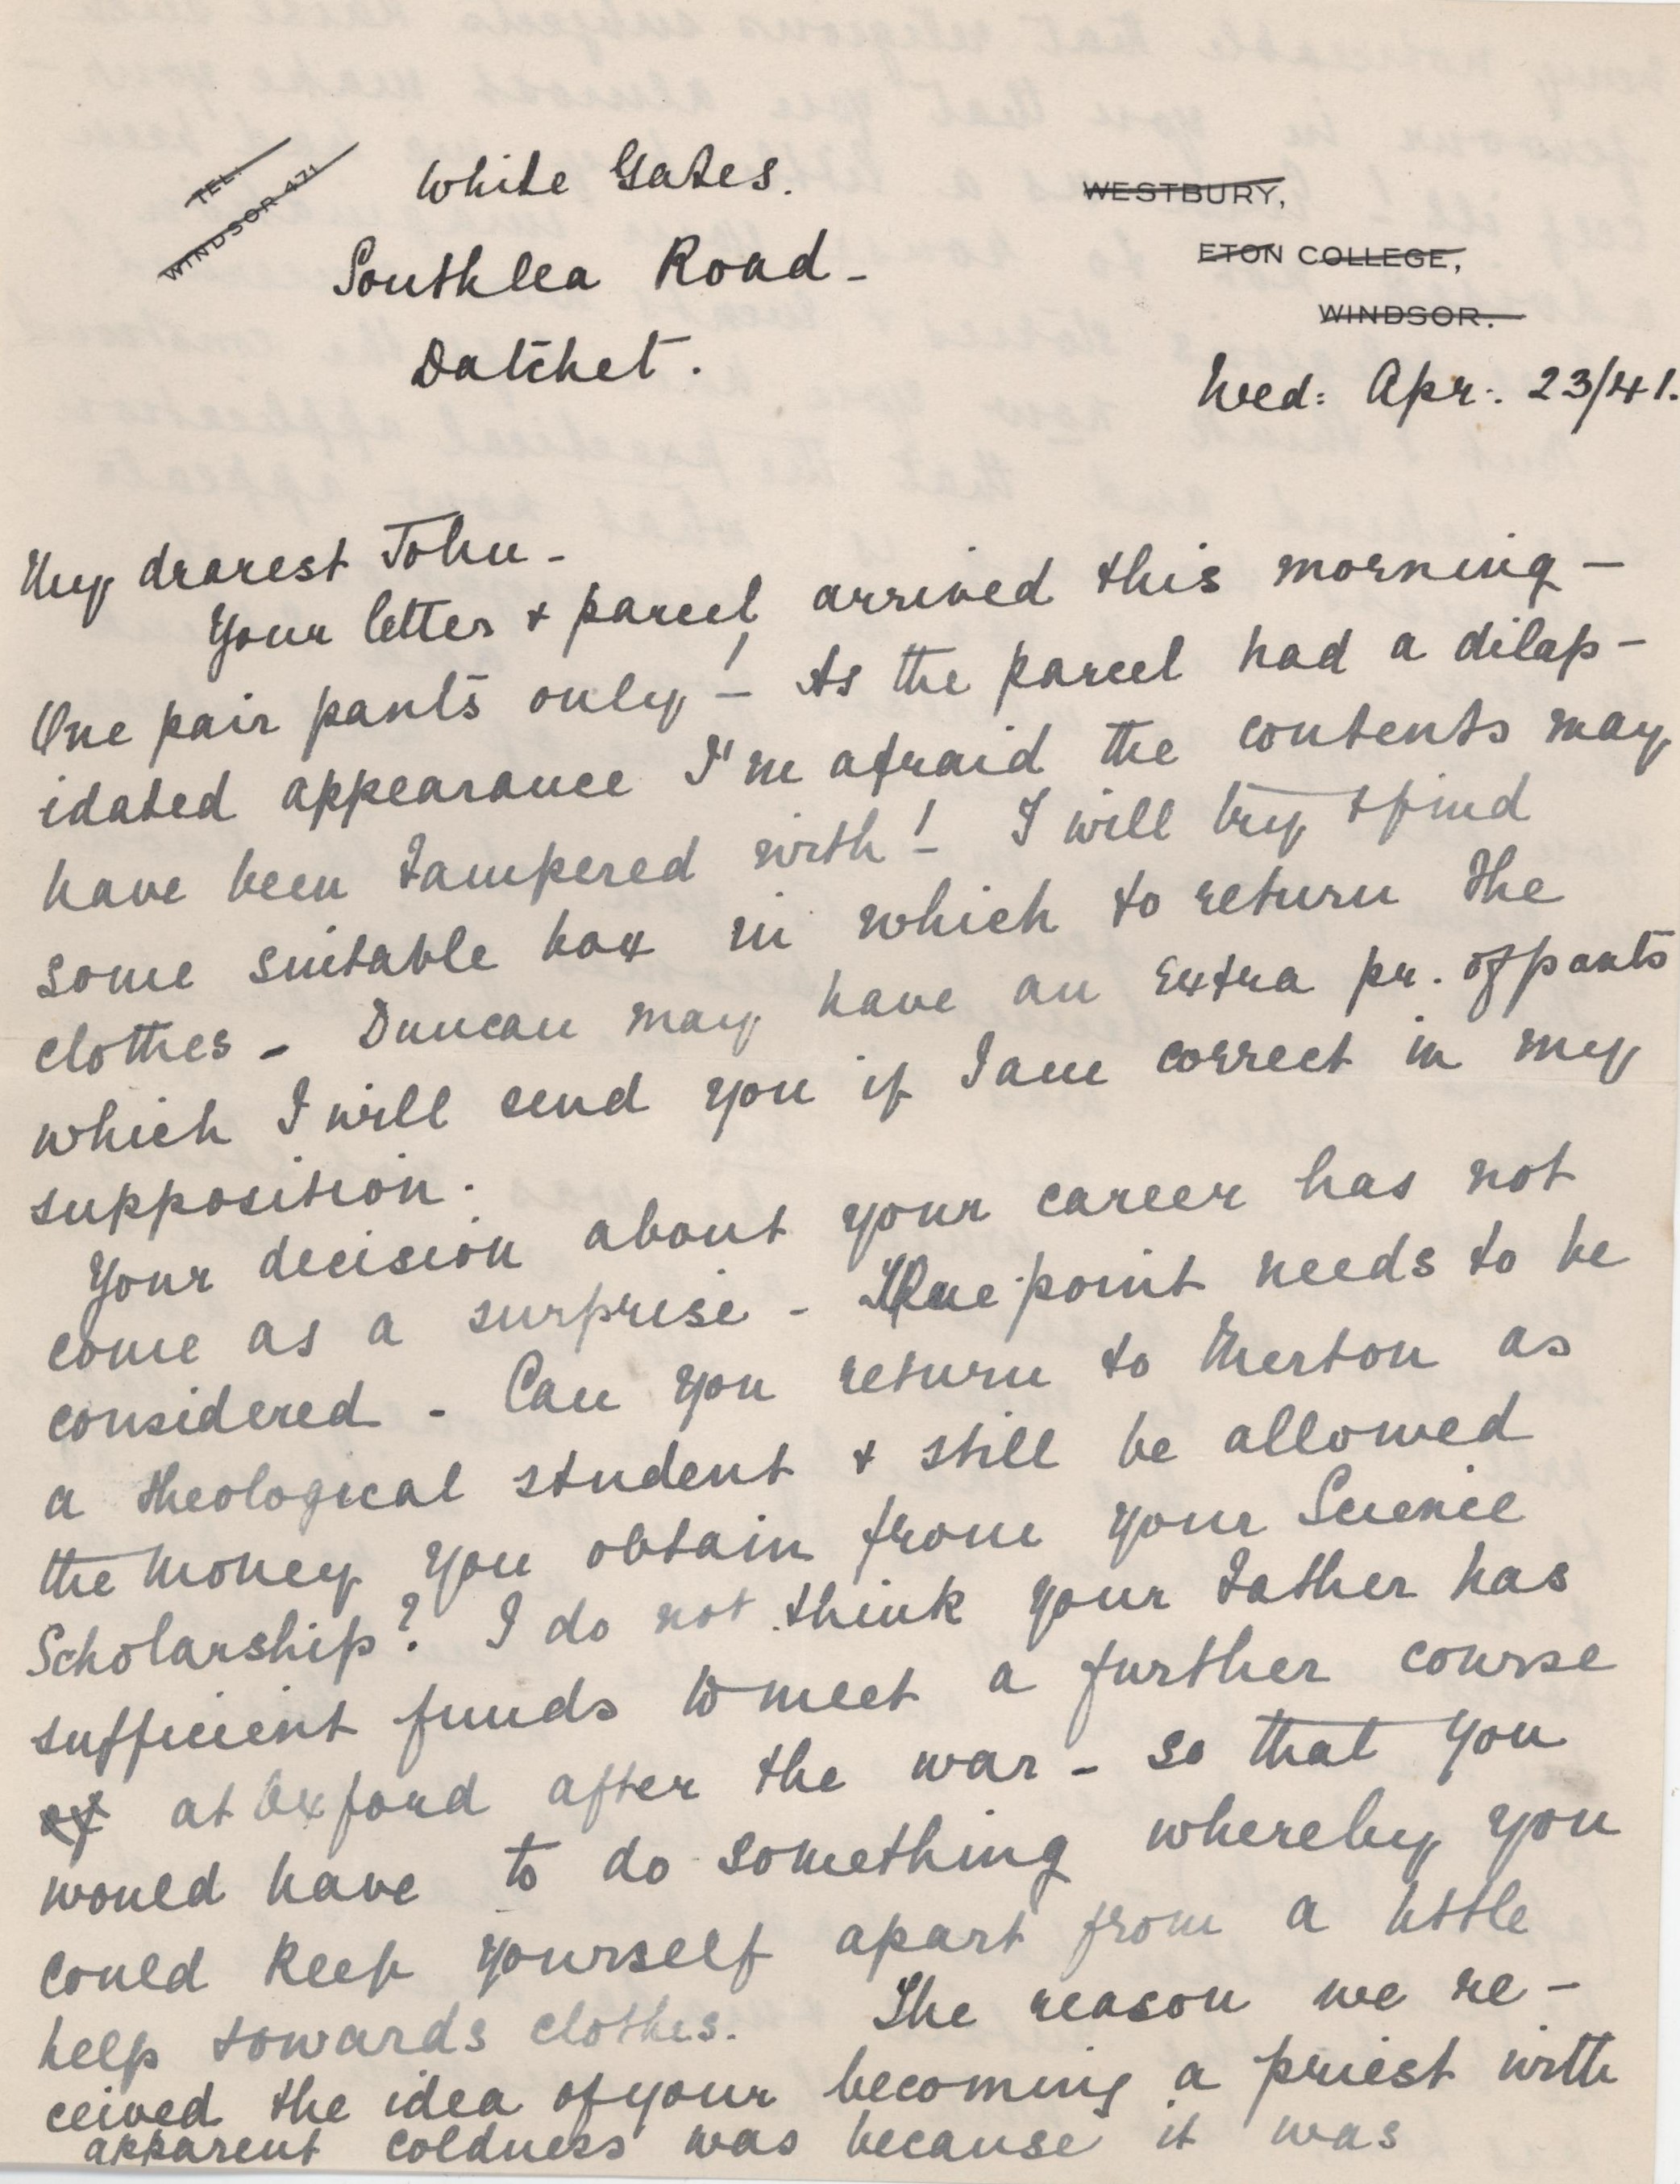 TEL:
WINDSOR 471
White Gates.
Southlea Road -
Datchet.
WESTBURY,
ETON COLLEGE,
WINDSOR.
Wed: Apr: 23/41.
My dearest John -
Your letter & parcel arrived this morning -
One pair pants only! - As the parcel had a dilap-
idated appearance I'm afraid the contents may
have been tampered with! - I will try & find
some suitable box in which to return the
clothes - Duncan may have an extra pr. of pants
which I will send you if I am correct in my
supposition.
Your decision about your career has not
come as a surprise - One point needs to be
considered - Can you return to Merton as
a theological student & still be allowed
the money you obtain from your Science
Scholarship? I do not think your Father has
sufficient funds to meet a further course
of at Oxford after the war - so that you
would have to do something whereby you
could keep yourself apart from a little
help towards clothes. The reason we re-
ceived the idea of your becoming a priest with
apparent coldness was because it was